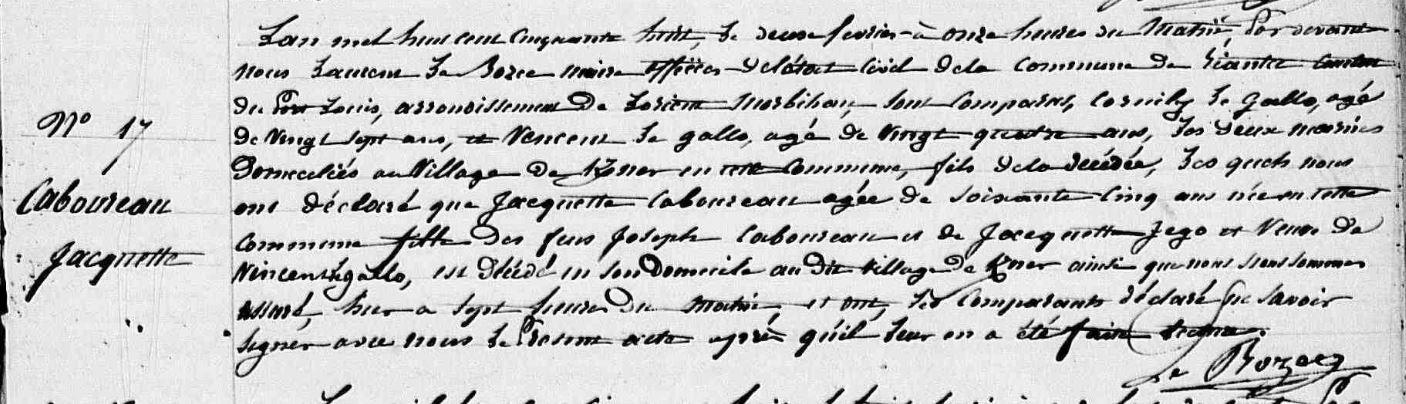 N° 17
Caboureau
Jacquette
Lan mil huit cent Cinquante huit, le deux fevrier à onze heures du Matin Par devant
nous Laurent Le Rozec maire officier de létat Civil de la Commune de Riantec Canton
du Port Louis, arrondissement de Lorient Morbihan, sont Comparus, Cornily Le Gallo, agé
de Vingt sept ans, et Vencent Le gallo, agé de Vingt quatre ans, les deux marins
Domeciliés au Village de Kner en cette Commune, fils de la décédée, Les quels nous
ont déclaré que Jacquette Caboureau agée de soixante Cinq ans née en cette
Commune fille des feus Joseph Caboureau et de Jacquette Jego et Veuve de
Vincent Legallo, est décédé en son Domicile au dit Village de Kner ainsi que nous nous sommes
assuré, hier a sept heures du matin, et ont, les Comparants déclaré ne savoir
signer avec nous le Présent acte après qu'il leur en a été faite lecture.
Le Rozec